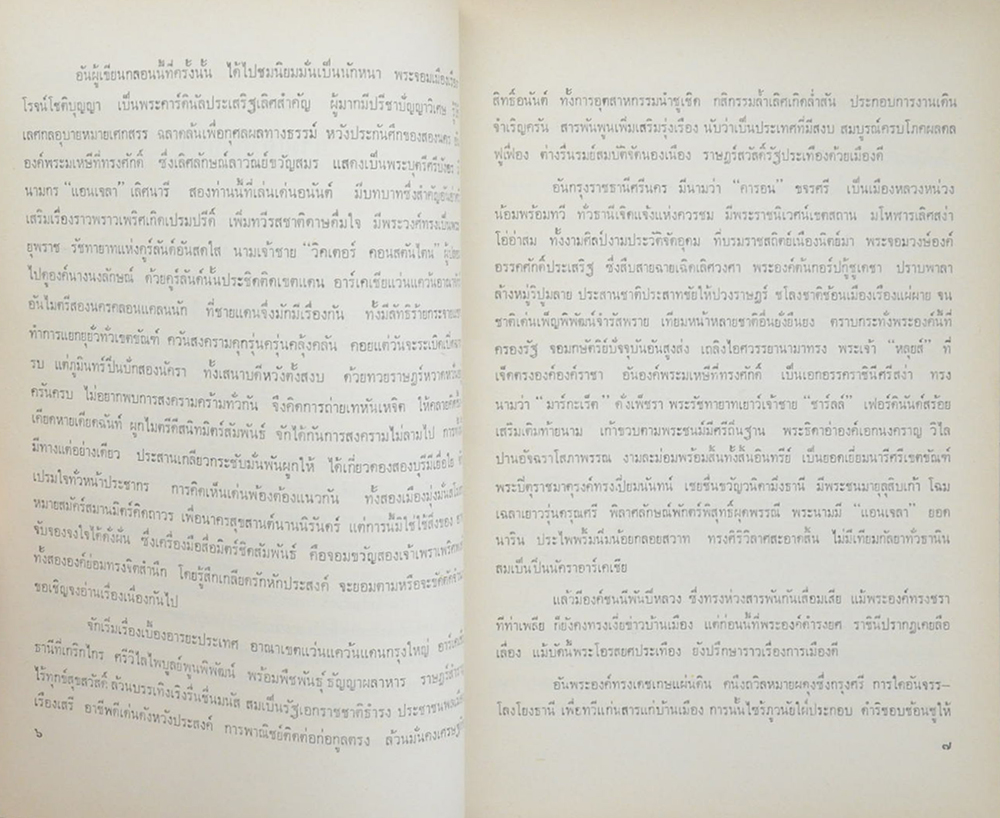 อันผู้เขียนกลอนนี้ที่ครั้งนั้น ได้ไปชมนิยมมั่นเป็นนักหนา พระจอมเมือง
โรจน์โชติบุญญา เป็นพระคาร์ดินัลประเสริฐเลิศสำคัญ ผู้มากมีปรีชาปัญญาวิเศษ
เลศกลอุบายหมายเศกสรร ฉลาดล้นเพื่อกุศลผลทางธรรม์ หวังประกันศึกของสองนคร
องค์พระมเหษีที่ทรงศักดิ์ ซึ่งเลิศลักษณ์ลาวัณย์ขวัญสมร แสดงเป็นพระบุตรีศรีบังอร
นามกร “แอนเจลา” เลิศนารี สองท่านนี้ที่เล่นเด่นอนันต์ มีบทบาทซึ่งสำคัญ
เสริมเรื่องราวพราวเพริศเกิดเปรมปรีดิ์ เพิ่มทวีรสชาติดาษดื่มใจ มีพระวงศ์ทรงเป็น
ยุพราช รัชทายาทแห่งกูร์ลันต์อันสดใส นามเจ้าชาย “วิคเตอร์ คอนสตันไตน”
ไปคู่องค์นางนงลักษณ์ ด้วยกูร์ลันต์นั้นประชิดติดเขตแดน อาร์เคเชียแว่นแคว้น
อันไมตรีสองนครคลอนแคลนนัก ที่ชายแดนจึงมักมีเรื่องกัน ทั้งมีลัทธิร้าย
ทำการแยกยุยั่วทั่วเขตขัณฑ์ ควันสงครามคุกรุ่นครุ่นคลุ้งควัน คอยแต่วันจะระเบิด
รบ แต่ภูมินทร์ปิ่นปักสองนัครา ทั้งเสนาบดีหวังตั้งสงบ ด้วยทวยราษฎร์
ครันครบ ไม่อยากพบการสงครามคร้ามทั่วกัน จึงคิดการถ่ายเทหันเหจิต ให้คลาย
เคียดหายเดียดฉันท์ ผูกไมตรีคืนสนิทมิตร์สัมพันธ์ จักได้กันการสงครามไม่ลามไป
มีทางแต่อย่างเดียว ประสานเกลียวกระชับมั่นพันผูกให้ ได้เกี่ยวดองสองบุรีมีเยื่อใย
เปรมใจทั่วหน้าประชากร การคิดเห็นเด่นพ้องต้องแนวกัน ทั้งสองเมืองมุ่งมั่น
หมายสมัครสมานมิตร์คิดถาวร เพื่อนาครสุขสานต์นานนิรันดร์ แต่การนี้มิใช่สิ่งของ
จับจองจงใจได้ดั่งฝัน ซึ่งเครื่องมือสื่อมิตร์ชิดสัมพันธ์ คือจอมขวัญสองเจ้าเพราเพริศ
ทั้งสององค์ย่อมทรงจิตสำนึก โดยรู้สึกเกลียดรักหักประสงค์ จะยอมตามหรือจะขัด
ขอเชิญจงอ่านเรื่องเนื่องกันไป
จักเริ่มเรื่องเบื้องอารยะประเทศ อาณาเขตแว่นแคว้นแดนกรุงใหญ่
ธานีที่เกริกไกร ศรีวิไลไพบูลย์พูนพิพัฒน์ พร้อมพืชพันธุ์ธัญญาผลาหาร ราษฎร์
ไร้ทุกข์สุขสวัสดิ์ ล้วนบรรเทิงเริงรื่นชื่นมนัส สมเป็นรัฐเอกราชชาติธำรง ประชาชน
เรืองเสรี อาชีพดีเด่นดังหวังประสงค์ การพาณิชย์ติดต่อก่อกูลตรง ล้วนมั่นคง
๖
สิทธิ์อนันต์ ทั้งการอุตสาหกรรมนำชูเชิด กสิกรรมล้ำเลิศเกิดล่ำสัน ประกอบการงานเดิน
จำเริญครัน สารพันพูนเพิ่มเสริมรุ่งเรือง นับว่าเป็นประเทศที่มีสงบ สมบูรณ์ครบโภคผลดล
ฟูเฟื่อง ต่างรื่นรมย์สมบัติจัดนองเนือง ราษฎร์สวัสดิ์รัฐประเทืองด้วยเมืองดี
อันกรุงราชธานีศรีนคร มีนามว่า “คารอน” ขจรศรี เป็นเมืองหลวงหน่วง
น้อมพร้อมทวี ทั่วธานีเจิดแจ้งแห่งควรชม มีพระราชนิเวศน์เขตสถาน มโหฬารเลิศสง่า
โอ่อ่าสม ทั้งงามศิลป์งามประวัติจัดอุดม ที่บรมราชสถิตย์เนื่องนิตย์มา พระจอมวงษ์องค์
อรรคศักดิ์ประเสริฐ ซึ่งสืบสายฉายเฉิดเลิศวงศา พระองค์ต้นกอร์ปกู้ชูเดชา ปราบพาลา
ล้างหมู่ริปูมลาย ประสานชาติประสาทชัยให้ปวงราษฎร์ ชโลงชาติช้อนเมืองเรืองแผ่ผาย จน
ชาติเด่นเพ็ญพิพัฒน์จำรัสพราย เทียมหน้าหลายชาติอื่นยั่งยืนยง ตราบกระทั่งพระองค์นี้ที่
ครองรัฐ จอมกษัตริย์ปัจจุบันอันสูงส่ง เถลิงไอศวรรยานามาทรง พระเจ้า “หลุยส์” ที่
เจ็ดตรงองค์องค์ราชา อันองค์พระมเหษีที่ทรงศักดิ์ เป็นเอกอรรคราชินีศรีสง่า ทรง
นามว่า “มาร์กะเร็ต” ดั่งเพ็ชรา พระรัชทายาทเยาว์เจ้าชาย “ชาร์ลส์” เฟอร์ดินันด์สร้อย
เสริมเติมท้ายนาม เก้าขวบตามพระชนม์มีศรีถิ่นฐาน พระธิดาอ่าองค์เอกนงคราญ วิไล
ปานอัจฉราโสภาพรรณ งามละม่อมพร้อมสิ้นทั้งสิ้นอินทรีย์ เป็นยอดเยี่ยมนารีศรีเขตขัณฑ์
พระปิตุราชมาตุรงค์ทรงเปี่ยมนันทน์ เชยชื่นขวัญวนิดามิ่งธานี มีพระชนมายุสูสิบเก้า โฉม
เฉลาเยาวรุ่นดรุณศรี พิลาศลักษณ์พักตร์พิสุทธิ์ผุดพรรณี พระนามมี “แอนเจลา” ยอด
นาริน ประไพพริ้มนิ่มน้อยกลอยสวาท ทรงศิริวิลาศสะอาดสิ้น ไม่มีเทียมกัลยาทั่วธานิน
สมเป็นปิ่นนัคราอาร์เคเชีย
แล้วมีองค์ชนนีพันปีหลวง ซึ่งทรงห่วงสารพันกันเสื่อมเสีย แม้พระองค์ทรงชรา
ทีท่าเพลีย ก็ยังคงทรงเงี่ยข่าวบ้านเมือง แต่ก่อนนี้ที่พระองค์ดำรงยศ ราชินีปรากฏเคยลือ
เลื่อง แม้บัดนี้พระโอรสยศประเทือง ยังปรึกษาราวเรื่องการเมืองดี
อันพระองค์ทรงเดชเกษแผ่นดิน คนึงถวิลหมายผดุงซึ่งกรุงศรี การใดอันจรร-
โลงโยงธานี เพื่อทวีแก่นสารแก่บ้านเมือง การนั้นไซร้ภูวนัยใฝ่ประกอบ ดำริชอบช้อนชูให้
๗